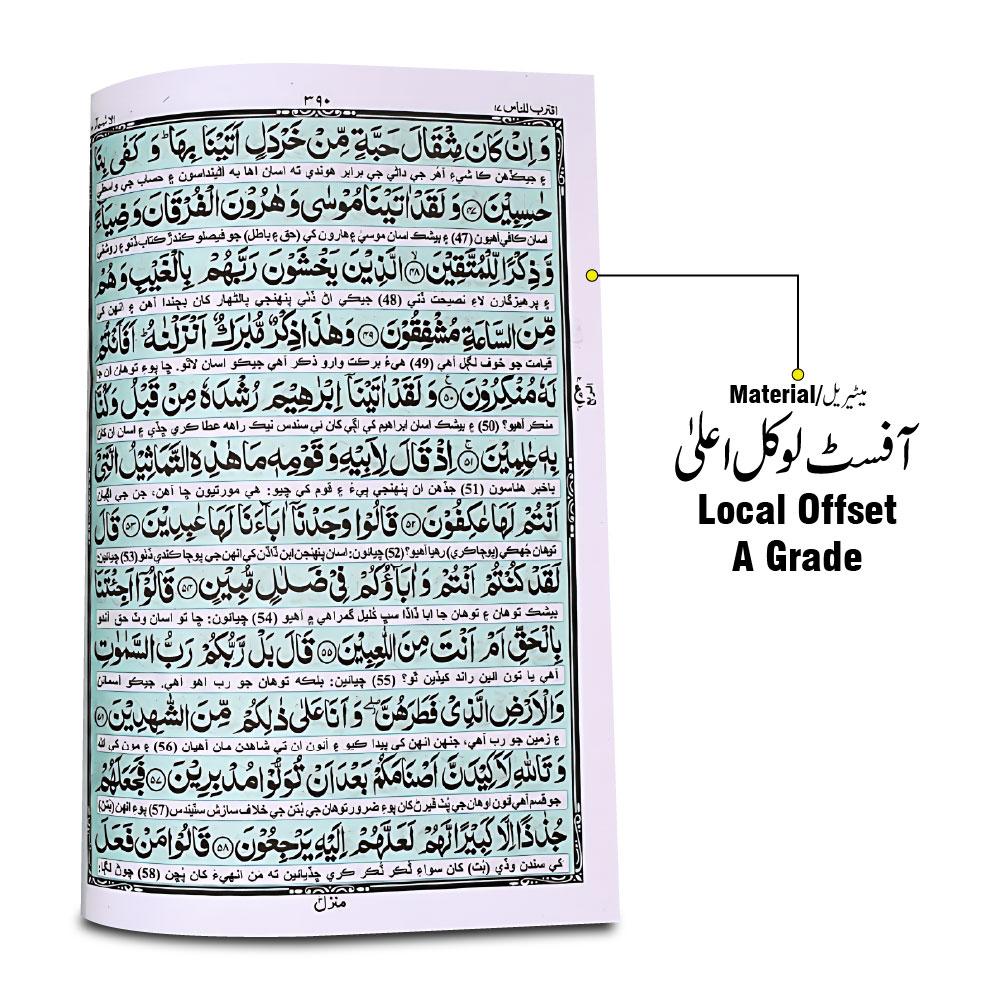 اقترب للناس ۱۷
۳۹۰
وَ اِنْ كَانَ مِثْقَالَ حَبَّةٍ مِّنْ خَرْدَلٍ اَتَيْنَا بِهَا ؕ وَ كَفٰى بِنَا
۽ جيڪڏهن ڪا شيءِ اهر جي داڻي جي برابر هوندي ته اسان اها به آڻينداسون ۽ حساب جي واسطي
حٰسِبِيْنَ ﴿۴۷﴾ وَ لَقَدْ اٰتَيْنَا مُوْسٰى وَ هٰرُوْنَ الْفُرْقَانَ وَ ضِيَآءً
اسان ڪافي آهيون (47) ۽ بيشڪ اسان موسيٰ ۽ هارون کي (حق ۽ باطل) جو فيصلو ڪندڙ ڪتاب ڏنو ۽ روشني
وَّ ذِكْرًا لِّلْمُتَّقِيْنَ ۙ﴿۴۸﴾ الَّذِيْنَ يَخْشَوْنَ رَبَّهُمْ بِالْغَيْبِ وَ هُمْ
۽ پرهيزگارن لاءِ نصيحت ڏني (48) جيڪي اڻ ڏٺي پنهنجي پالڻهار کان ڊڄندا آهن ۽ انهن کي
مِّنَ السَّاعَةِ مُشْفِقُوْنَ ﴿۴۹﴾ وَ هٰذَا ذِكْرٌ مُّبٰرَكٌ اَنْزَلْنٰهُ ؕ اَفَاَنْتُمْ
قيامت جو خوف لڳل آهي (49) هيءُ برڪت وارو ذڪر آهي جيڪو اسان لاٿو. ڇا پوءِ توهان ان جا
لَهٗ مُنْكِرُوْنَ ﴿۵۰﴾ وَ لَقَدْ اٰتَيْنَاۤ اِبْرٰهِيْمَ رُشْدَهٗ مِنْ قَبْلُ وَ كُنَّا
منڪر آهيو؟ (50) ۽ بيشڪ اسان ابراهيم کي اڳي کان ئي سندس نيڪ راهه عطا ڪري ڇڏي ۽ اسان ان کان
بِهٖ عٰلِمِيْنَ ﴿۵۱﴾ اِذْ قَالَ لِاَبِيْهِ وَ قَوْمِهٖ مَا هٰذِهِ التَّمَاثِيْلُ الَّتِيْۤ
باخبر هئاسون (51) جڏهن ان پنهنجي پيءُ ۽ قوم کي چيو: هي مورتيون ڇا آهن، جن جي اڳيان
اَنْتُمْ لَهَا عٰكِفُوْنَ ﴿۵۲﴾ قَالُوْا وَجَدْنَاۤ اٰبَآءَنَا لَهَا عٰبِدِيْنَ ﴿۵۳﴾ قَالَ
توهان جهڪي (پوڄا ڪري) رهيا آهيو؟ (52) چيائون: اسان پنهنجن ابن ڏاڏن کي انهن جي پوڄا ڪندي ڏٺو (53) چيائين:
لَقَدْ كُنْتُمْ اَنْتُمْ وَ اٰبَآؤُكُمْ فِيْ ضَلٰلٍ مُّبِيْنٍ ﴿۵۴﴾ قَالُوْۤا اَجِئْتَنَا
بيشڪ توهان ۽ توهان جا ابا ڏاڏا سڀ کليل گمراهي ۾ آهيو (54) چيائون: ڇا تو اسان وٽ حق آندو
بِالْحَقِّ اَمْ اَنْتَ مِنَ اللّٰعِبِيْنَ ﴿۵۵﴾ قَالَ بَلْ رَّبُّكُمْ رَبُّ السَّمٰوٰتِ
آهي يا تون ائين راند کيڏين ٿو؟ (55) چيائين: بلڪه توهان جو رب اهو آهي، جيڪو آسمانن
وَ الْاَرْضِ الَّذِيْ فَطَرَهُنَّ ۖ وَ اَنَا عَلٰى ذٰلِكُمْ مِّنَ الشّٰهِدِيْنَ ﴿۵۶﴾
۽ زمين جو رب آهي، جنهن انهن کي پيدا ڪيو ۽ آئون ان تي شاهدن مان آهيان (56) ۽ مون کي الله
وَ تَاللّٰهِ لَاَكِيْدَنَّ اَصْنَامَكُمْ بَعْدَ اَنْ تُوَلُّوْا مُدْبِرِيْنَ ﴿۵۷﴾ فَجَعَلَهُمْ
جو قسم آهي آئون اوهان جي پٺ ڦيرڻ کان پوءِ ضرور توهان جي بُتن جي خلاف سازش سٽيندس (57) پوءِ انهن (بتن)
جُذٰذًا اِلَّا كَبِيْرًا لَّهُمْ لَعَلَّهُمْ اِلَيْهِ يَرْجِعُوْنَ ﴿۵۸﴾ قَالُوْا مَنْ فَعَلَ
کي سندن وڏي (بت) کان سواءِ ٽڪر ٽڪر ڪري ڇڏيائين ته من انهيءَ کان پڇن (58) چوڻ لڳا:
منزل
Material/میٹیریل
آفسٹ لوکل اعلیٰ
Local Offset
A Grade